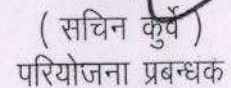 ( सचिन कुर्वे )
परियोजना प्रबन्धक